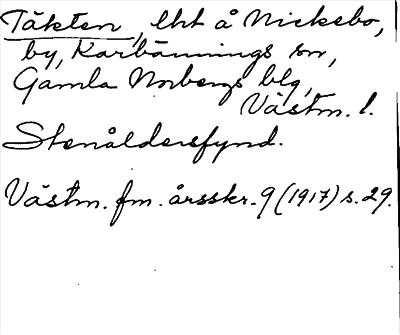 Täkten, lht å Nickebo,
by, Karbännings sn,
Gamla Norbergs blg,
Västm. l.
Stenåldersfynd.
Västm. fm. årsskr. 9 (1917) s. 29.